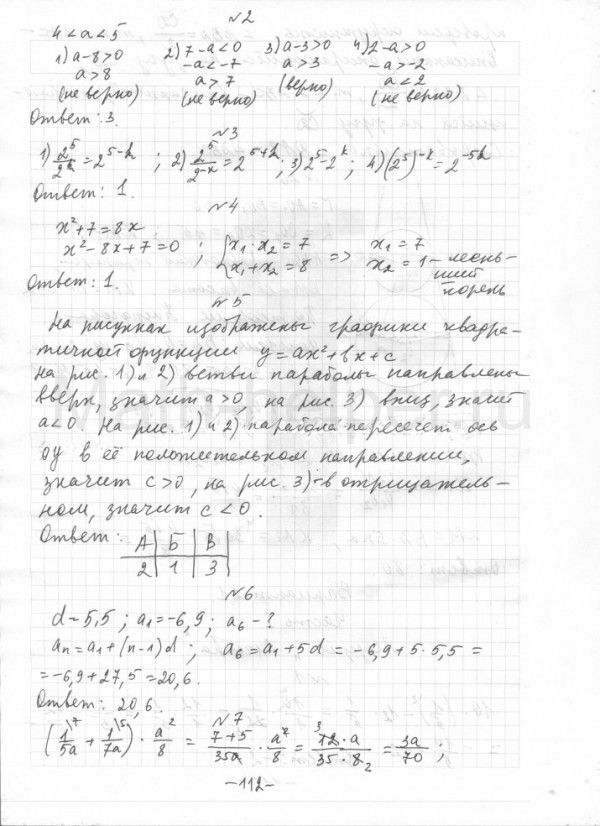 №2
4 < a < 5
1) a-8>0 2) 7-a<0 3) a-3>0 4) 2-a>0
a>8 -a<-7 a>3 -a>-2
(не верно) a>7 (верно) a<2
(не верно) (не верно)
Ответ: 3.
№3
1) 2^5/2^k = 2^(5-k) ; 2) 2^5/2^(-k) = 2^(5+k) ; 3) 2^5-2^k ; 4) (2^5)^(-k) = 2^(-5k)
Ответ: 1.
№4
x²+7=8x
x²-8x+7=0 ; { x₁·x₂=7 => x₁=7
x₁+x₂=8 x₂=1 – мень-
ший
корень
Ответ: 1.
№5
На рисунках изображены графики квадра-
тичной функции y=ax²+bx+c
На рис. 1) и 2) ветви параболы направлены
вверх, значит a>0, на рис. 3) вниз, значит
a<0. На рис. 1) и 2) парабола пересечет ось
oy в её положительном направлении,
значит c>0, на рис. 3)-в отрицатель-
ном, значит c<0.
Ответ: А | Б | В
2 | 1 | 3
№6
d=5,5 ; a₁=-6,9 ; a₆-?
aₙ=a₁+(n-1)d ; a₆=a₁+5d = -6,9+5·5,5 =
= -6,9+27,5=20,6.
Ответ: 20,6.
№7
(1\7/5a + 1\5/7a) · a²/8 = (7+5)/35a · a²/8 = 3 12·a/35·8 2 = 3a/70 ;
-112-